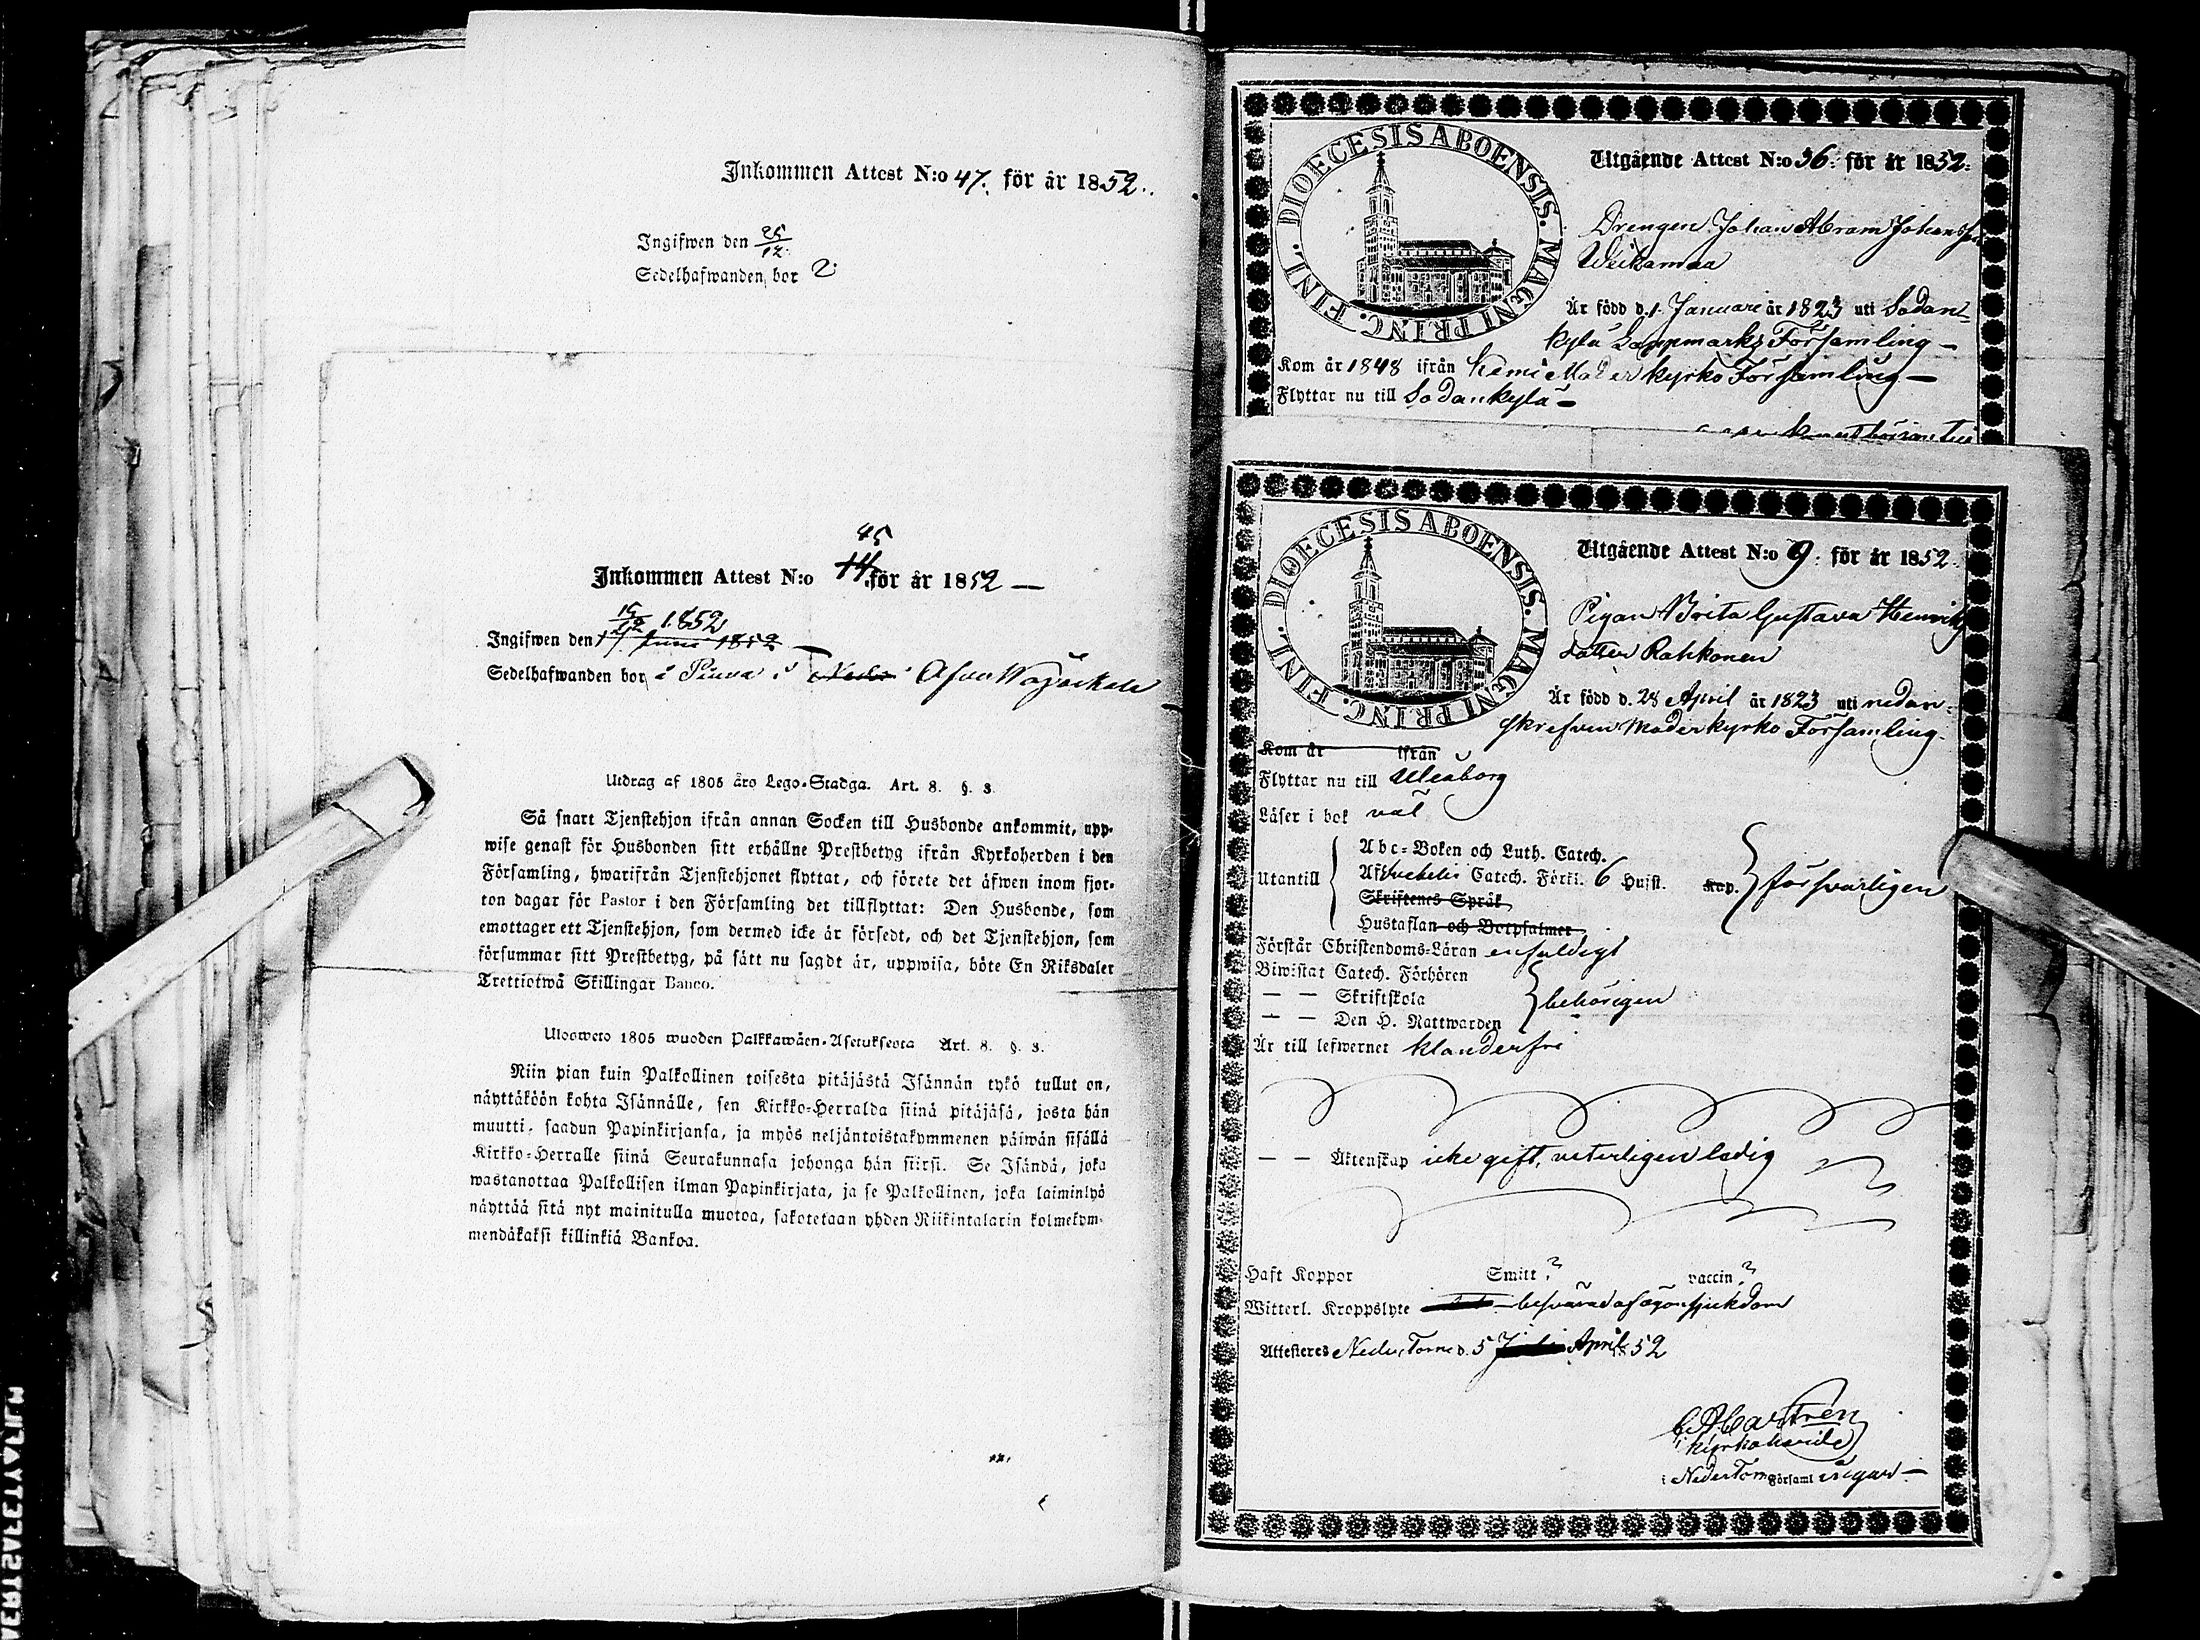 Inkommen Attest N:o 47. för år 1852.
Ingifwen den 25/12.
Sedelhafwanden bor 2
45
Inkommen Attest N:o 14 för år 1852 —
15/12 1852
Ingifwen den 17 Juni 1852 —
Sedelhafwanden bor i
Utdrag af 1805 års Lego-Stadga. Art. 8. §. 3.
Så snart Tjenstehjon ifrån annan Socken till Husbonde ankommit, upp-
wise genast för Husbonden sitt erhållne Prestbetyg ifrån Kyrkoherden i den
Församling, hwarifrån Tjenstehjonet flyttat, och förete det äfwen inom fjor-
ton dagar för Pastor i den Församling det tillflyttat: Den Husbonde, som
emottager ett Tjenstehjon, som dermed icke är försedt, och det Tjenstehjon, som
försummar sitt Prestbetyg, på sätt nu sagdt är, uppwisa, böte En Riksdaler
Trettiotwå Skillingar Banco.
Ulosweto 1805 wuoden Palkkawäen-Asetuksesta Art. 8. §. 3.
Niin pian kuin Palkollinen toisesta pitäjästä Isännän tykö tullut on,
näyttäköön kohta Isännälle, sen Kirkko-Herralda siinä pitäjäsä, josta hän
muutti, saadun Papinkirjansa, ja myös neljäntoistakymmenen päiwän sisällä
Kirkko-Herralle siinä Seurakunnasa johonga hän siirsi. Se Isändä, joka
wastanottaa Palkollisen ilman Papinkirjata, ja se Palkollinen, joka laiminlyö
näyttää sitä nyt mainitulla muotoa, sakotetaan yhden Riikintalarin kolmekym-
mendäkaksi killinkiä Bankoa.
DIOECESIS ABOENSIS. MAGNI PRINC. FINL.
Utgående Attest N:o 56. för år 1852.
Drengen Johan Abram Johansson
Weikamaa
Är född d. 1 Januari år 1823 uti Sodan-
kylä Lappmarks Församling —
Kom år 1848 ifrån Kemi Moderkyrko Församling —
Flyttar nu till Sodankylä —
DIOECESIS ABOENSIS. MAGNI PRINC. FINL.
Utgående Attest N:o 9. för år 1852.
Pigan Brita Gustava Henriks
dotter Rahkonen
Är född d. 28 April år 1823 uti nedan-
skrefven Moderkyrko Församling.
Kom år ifrån
Flyttar nu till Uleåborg
Läser i bok väl
Utantill
Abc-Boken och Luth. Catech.
Af Svebelii Catech. Förkl. 6 Hufst. Kap. försvarligen
Skriftenes Språk
Hustaflan och Botpsalmer
Förstår Christendoms-Läran enfaldigt
Biwistat Catech. Förhören
— — Skriftskola behörigen
— — Den H. Nattwarden
Är till lefwernet klanderfri
— — Äktenskap icke gift, veterligen ledig
Haft Koppor Smitt ? vaccin ?
Witterl. Kroppslyte besvärad af ögonsjukdom
Attesteras Neder Torne d. 5 April 52
C A Castrén
Kyrkoherde
i Neder Torne Församl ingar —